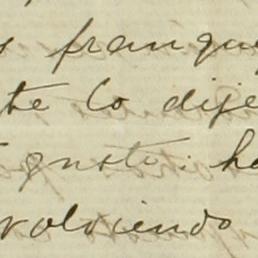 s franque
te lo dije
gusto. ha
volviendo